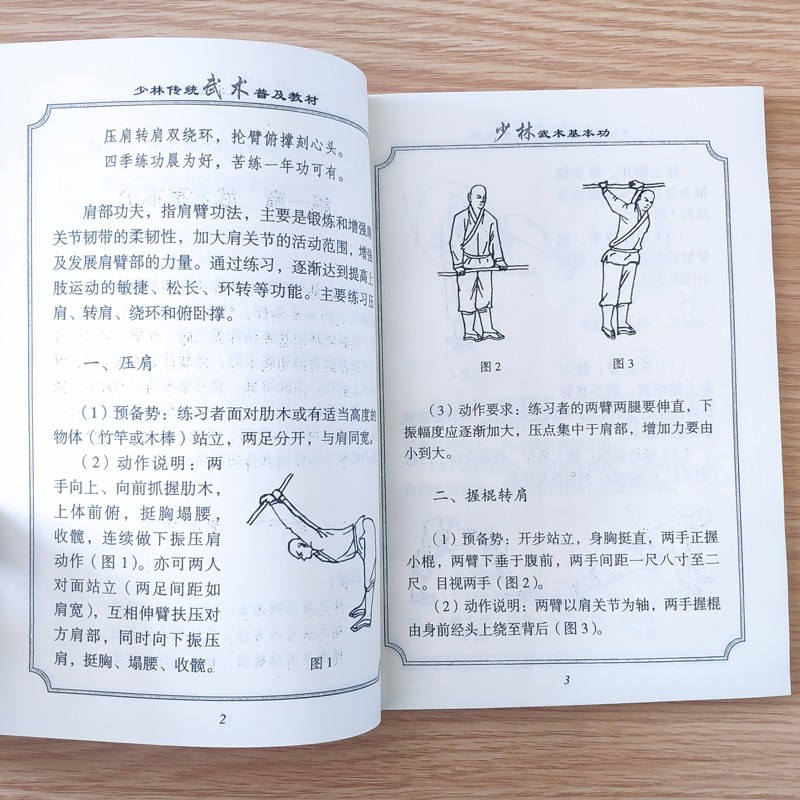 少林传统武术普及教材
压肩转肩双绕环，抡臂俯撑刻心头。
四季练功晨为好，苦练一年功可有。
肩部功夫，指肩臂功法，主要是锻炼和增强肩
关节韧带的柔韧性，加大肩关节的活动范围，增强
及发展肩臂部的力量。通过练习，逐渐达到提高上
肢运动的敏捷、松长、环转等功能。主要练习压
肩、转肩、绕环和俯卧撑。
一、压肩
（1）预备势：练习者面对肋木或有适当高度的
物体（竹竿或木棒）站立，两足分开，与肩同宽。
（2）动作说明：两
手向上、向前抓握肋木，
上体前俯，挺胸塌腰，
收髋，连续做下振压肩
动作（图1）。亦可两人
对面站立（两足间距如
肩宽），互相伸臂扶压对
方肩部，同时向下振压
肩，挺胸、塌腰、收髋。
图1
2
少林武术基本功
图2
图3
（3）动作要求：练习者的两臂两腿要伸直，下
振幅度应逐渐加大，压点集中于肩部，增加力要由
小到大。
二、握棍转肩
（1）预备势：开步站立，身胸挺直，两手正握
小棍，两臂下垂于腹前，两手间距一尺八寸至二
尺。目视两手（图2）。
（2）动作说明：两臂以肩关节为轴，两手握棍
由身前经头上绕至背后（图3）。
3